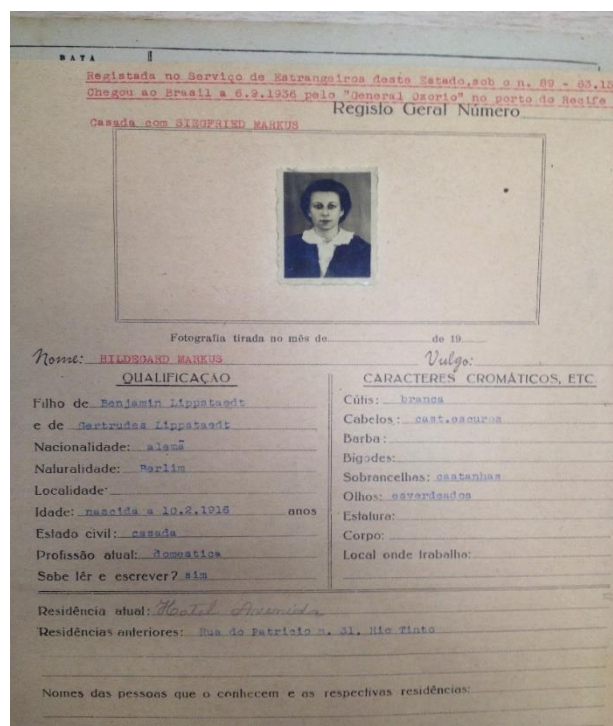 DATA
Registada no Serviço de Estrangeiros deste Estado,sob o n. 89 - 63.15
Chegou ao Brasil a 6.9.1936 pelo "General Osorio" no porto do Recife
Registo Geral Número
Casada com SIEGFRIED MARKUS
Fotografia tirada no mês de de 19
Nome: HILDEGARD MARKUS Vulgo:
QUALIFICAÇÃO
Filho de Benjamin Lippstaedt
e de Gertrudes Lippstaedt
Nacionalidade: alemã
Naturalidade: Berlim
Localidade:
Idade: nascida a 10.2.1916 anos
Estado civil: casada
Profissão atual: domestica
Sabe lêr e escrever? sim
CARACTERES CROMÁTICOS, ETC
Cútis: branca
Cabelos: cast.escuros
Barba:
Bigodes:
Sobrancelhas: castanhas
Olhos: esverdeados
Estatura:
Corpo:
Local onde trabalha:
Residência atual: Hotel Avenida
Residências anteriores: Rua do Patricio n. 31. Rio Tinto
Nomes das pessoas que o conhecem e as respectivas residências: